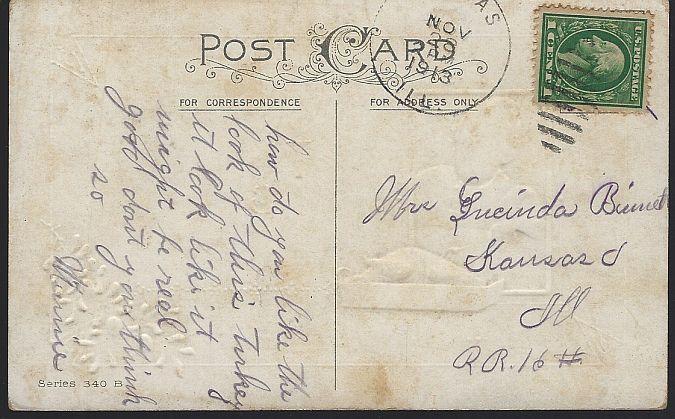 POST CARD
FOR CORRESPONDENCE
FOR ADDRESS ONLY
AS
NOV
29
1913
ILL.
U.S. POSTAGE
1 CENT 1
how do you like the
look of this turkey
it look like it
might be real
good dont you think
so
Minnie
Mrs
Kansas
Ill
R.R. 16 #
Series 340 B